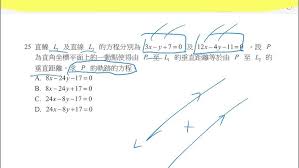 25 直線 L₁ 及直線 L₂ 的方程分別為 3x−y+7=0 及 12x−4y−11=0。設 P
為直角坐標平面上的一動點使得由 P 至 L₁ 的垂直距離等於由 P 至 L₂ 的
垂直距離。求 P 的軌跡的方程。
A. 8x−24y−17=0
B. 8x−24y+17=0
C. 24x−8y−17=0
D. 24x−8y+17=0
L